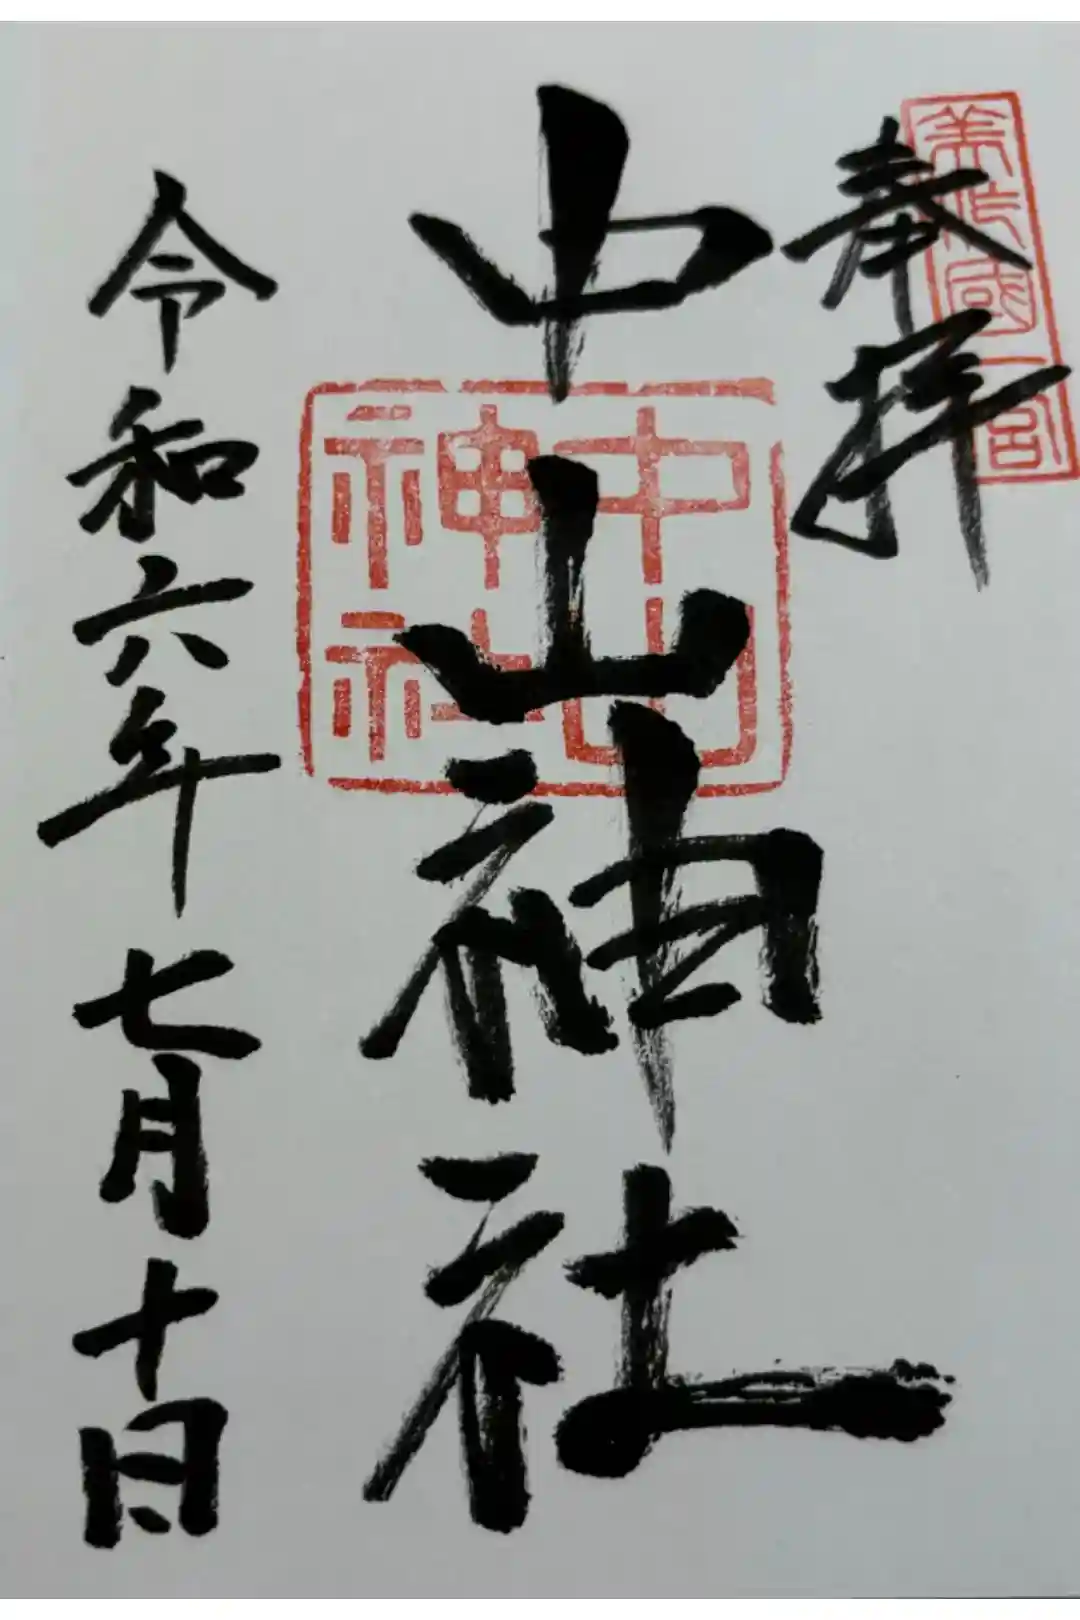 奉拝
美作国一宮
中山神社
中山神社
令和六年七月十日